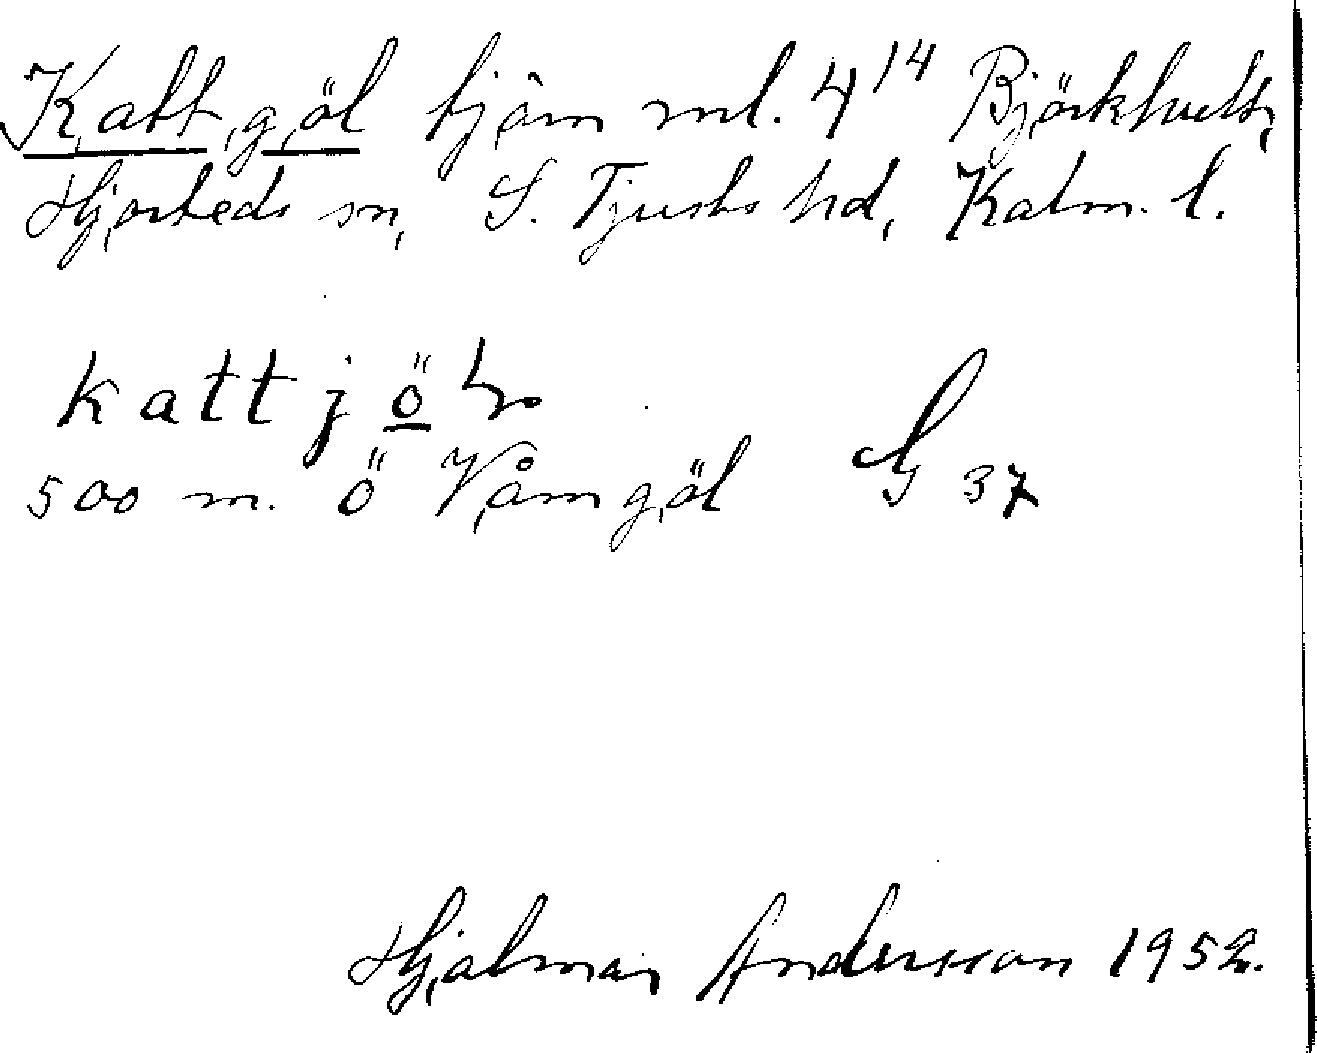 Kattgöl tjärn ml. 4¹⁴ Björkhult,
Hjorteds sn, S. Tjusts hd, Kalm. l.
kattjö
500 m. ö Våmgöl G 37
Hjalmar Andersson 1952.